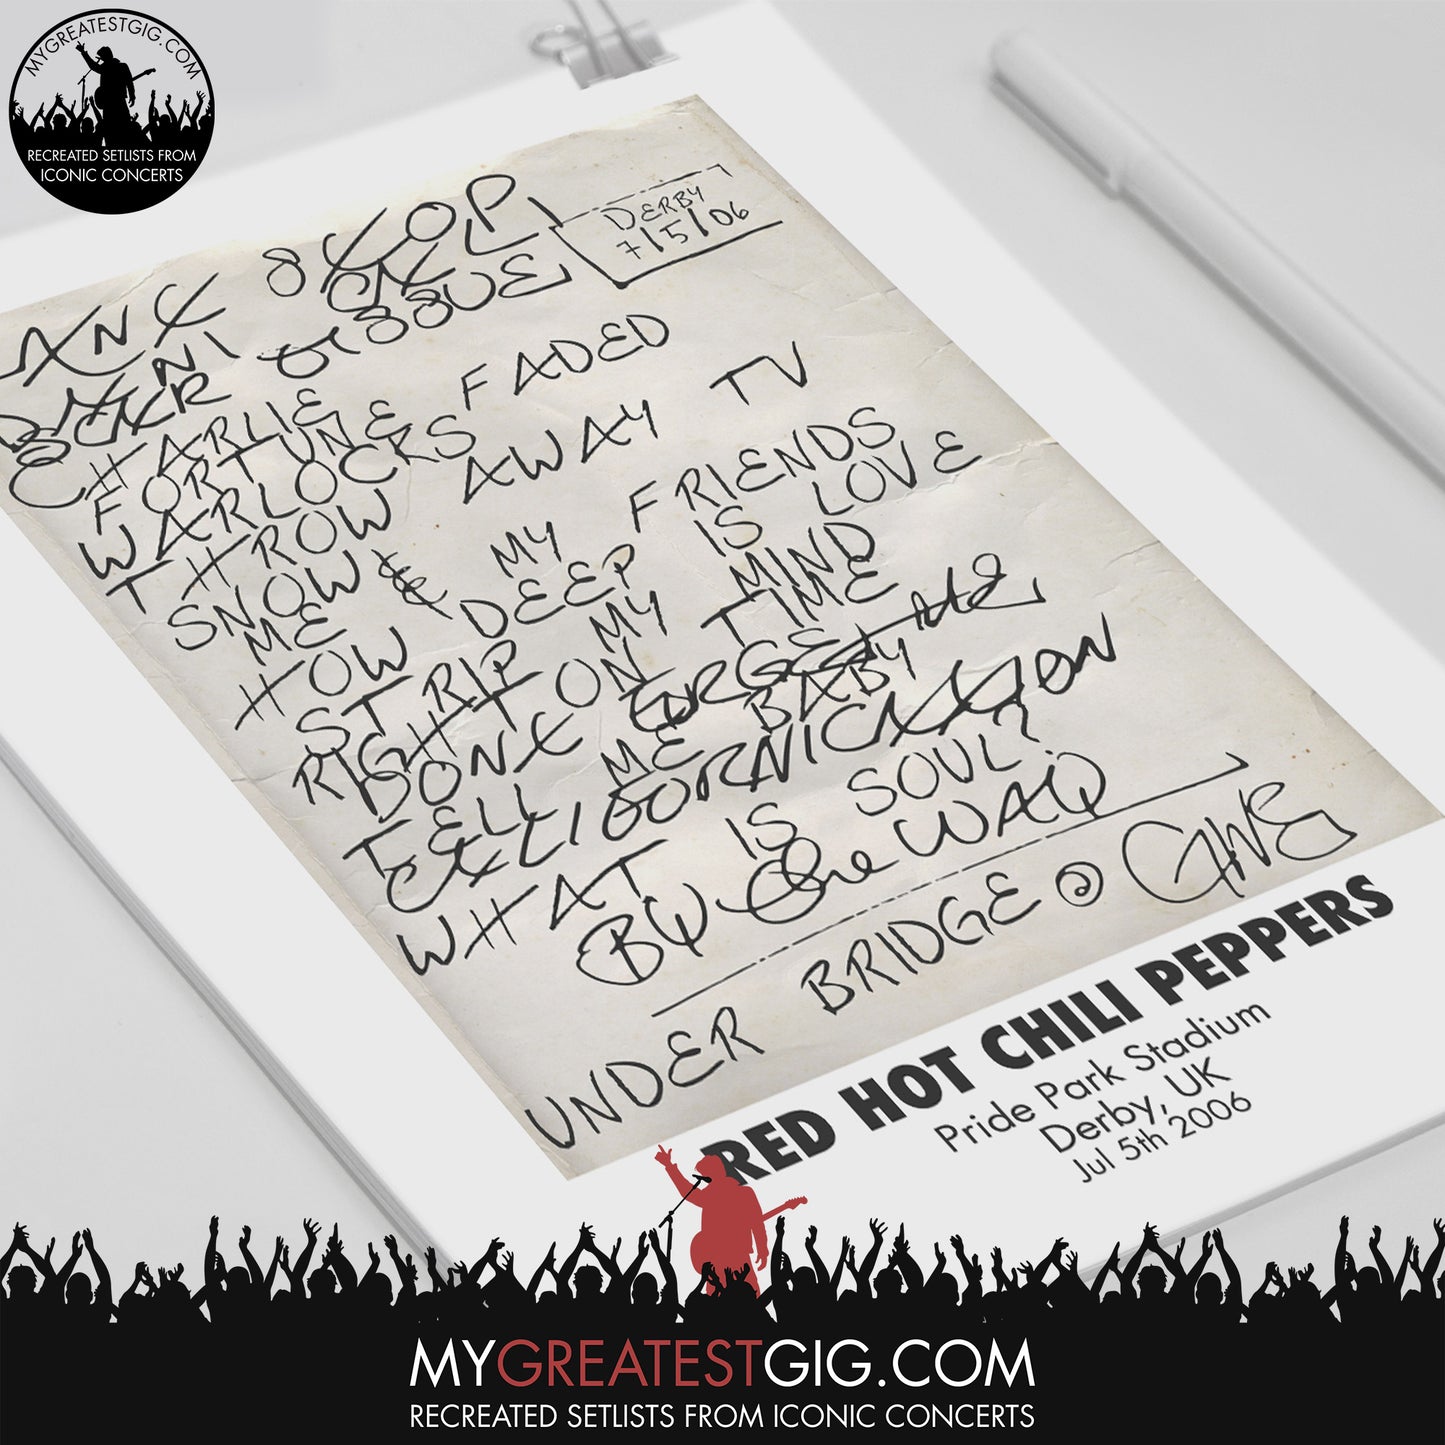 MYGREATESTGIG.COM
RECREATED SETLISTS FROM
ICONIC CONCERTS
DERBY
7/5/06
DANI CALI
SCAR TISSUE
CHARLIE
FORTUNE FADED
WARLOCKS
THROW AWAY TV
SNOW
ME & MY FRIENDS
HOW DEEP IS LOVE
STRIP MY MIND
RIGHT ON TIME
DONT FORGET ME
TELL ME BABY
CALIFORNICATION
WHAT IS SOUL?
BY the WAY
UNDER BRIDGE GIVE
RED HOT CHILI PEPPERS
Pride Park Stadium
Derby, UK
Jul 5th 2006
MYGREATESTGIG.COM
RECREATED SETLISTS FROM ICONIC CONCERTS